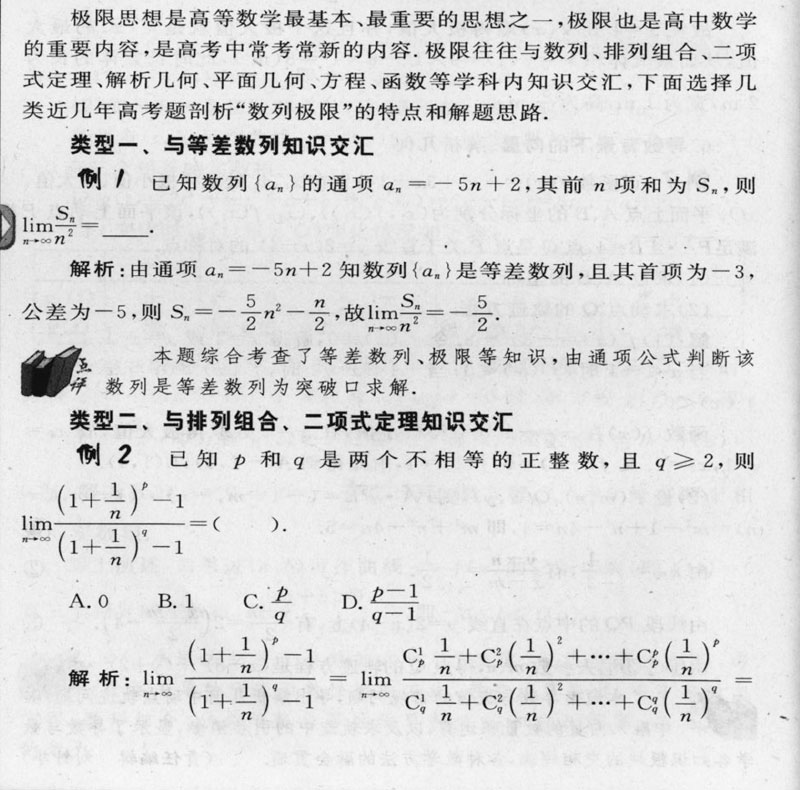 极限思想是高等数学最基本、最重要的思想之一,极限也是高中数学
的重要内容,是高考中常考常新的内容.极限往往与数列、排列组合、二项
式定理、解析几何、平面几何、方程、函数等学科内知识交汇,下面选择几
类近几年高考题剖析“数列极限”的特点和解题思路.
类型一、与等差数列知识交汇
例 1 已知数列{aₙ}的通项 aₙ=-5n+2,其前 n 项和为 Sₙ,则
lim_{n→∞} Sₙ/n²=____.
解析:由通项 aₙ=-5n+2 知数列{aₙ}是等差数列,且其首项为-3,
公差为-5,则 Sₙ=-5/2 n²-n/2,故 lim_{n→∞} Sₙ/n²=-5/2.
点评 本题综合考查了等差数列、极限等知识,由通项公式判断该
数列是等差数列为突破口求解.
类型二、与排列组合、二项式定理知识交汇
例 2 已知 p 和 q 是两个不相等的正整数,且 q≥2,则
lim_{n→∞} ((1+1/n)^p-1)/((1+1/n)^q-1)=( ).
A. 0 B. 1 C. p/q D. (p-1)/(q-1)
解析: lim_{n→∞} ((1+1/n)^p-1)/((1+1/n)^q-1) = lim_{n→∞} (C_p^1 1/n+C_p^2(1/n)^2+···+C_p^p(1/n)^p)/(C_q^1 1/n+C_q^2(1/n)^2+···+C_q^q(1/n)^q) =